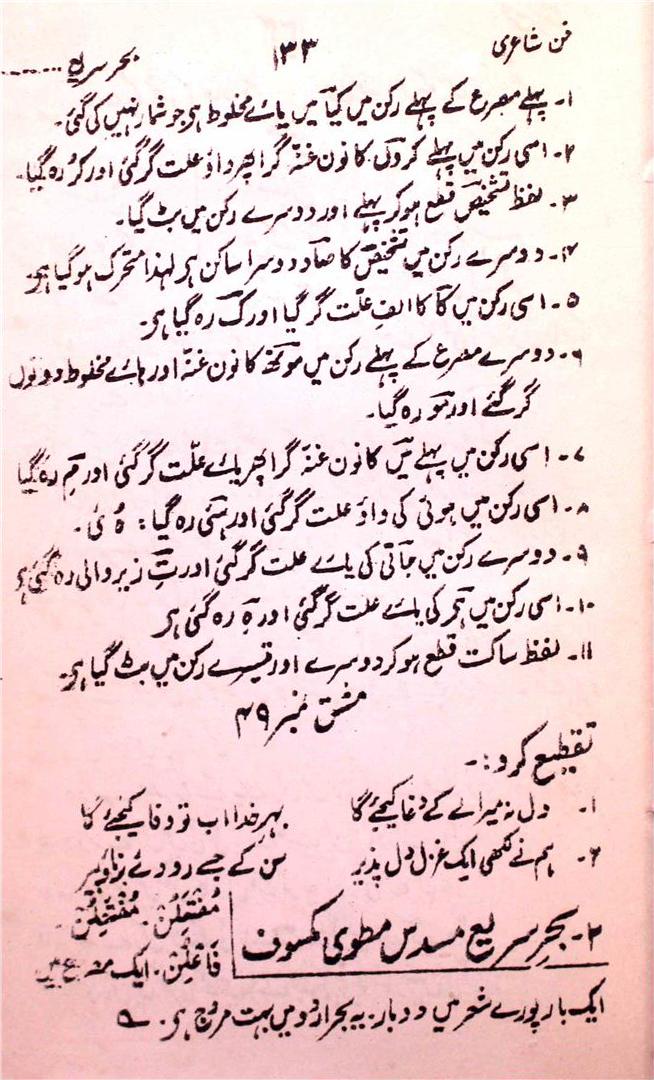 فن شاعری ۱۳۳ بحر سریع ......
۱۔ پہلے مصرع کے پہلے رکن میں کیا میں یائے مخلوط ہی جو شمار نہیں کی گئی۔
۲۔ اسی رکن میں پہلے کروں کا نون غنہ گرا پھر واؤ علت گر گئی اور کر رہ گیا۔
۳۔ لفظ تشخیص قطع ہو کر پہلے اور دوسرے رکن میں بٹ گیا۔
۴۔ دوسرے رکن میں تشخیص کا صاد دوسرا ساکن ہی لہٰذا متحرک ہو گیا ہی۔
۵۔ اسی رکن میں کا کا الف علّت گر گیا اور ک رہ گیا ہی۔
۶۔ دوسرے مصرع کے پہلے رکن میں مونھ کا نون غنّہ اور ہائے مخلوط دونوں
گر گئے اور مو رہ گیا۔
۷۔ اسی رکن میں پہلے میں کا نون غنہ گرا پھر یائے علّت گر گئی اور مِ رہ گیا
۸۔ اسی رکن میں ہوئی کی واؤ علت گر گئی اور ہئی رہ گیا : ہُ ئی۔
۹۔ دوسرے رکن میں جاتی کی یائے علت گر گئی اور تِ زیر والی رہ گئی ہی
۱۰۔ اسی رکن میں ہی کی یائے علت گر گئی اور ہِ رہ گئی ہی
۱۱۔ لفظ ساکت قطع ہو کر دوسرے اور تیسرے رکن میں بٹ گیا ہی۔
مشق نمبر ۴۹
تقطیع کرو :۔
۱۔ دل نہ میرا لے کے دغا کیجئے گا بہر خدا اب تو وفا کیجئے گا
۲۔ ہم نے لکھی ایک غزل دل پذیر سن کے جسے رو دئے برنا و پیر
۲۔ بحر سریع مسدس مطوی مکسوف مُفْتَعِلُنْ۔ مُفْتَعِلُنْ۔
فَاعِلُنْ۔ ایک مصرع میں
ایک بار پورے شعر میں دو بار۔ یہ بحر اردو میں بہت مروج ہی۔